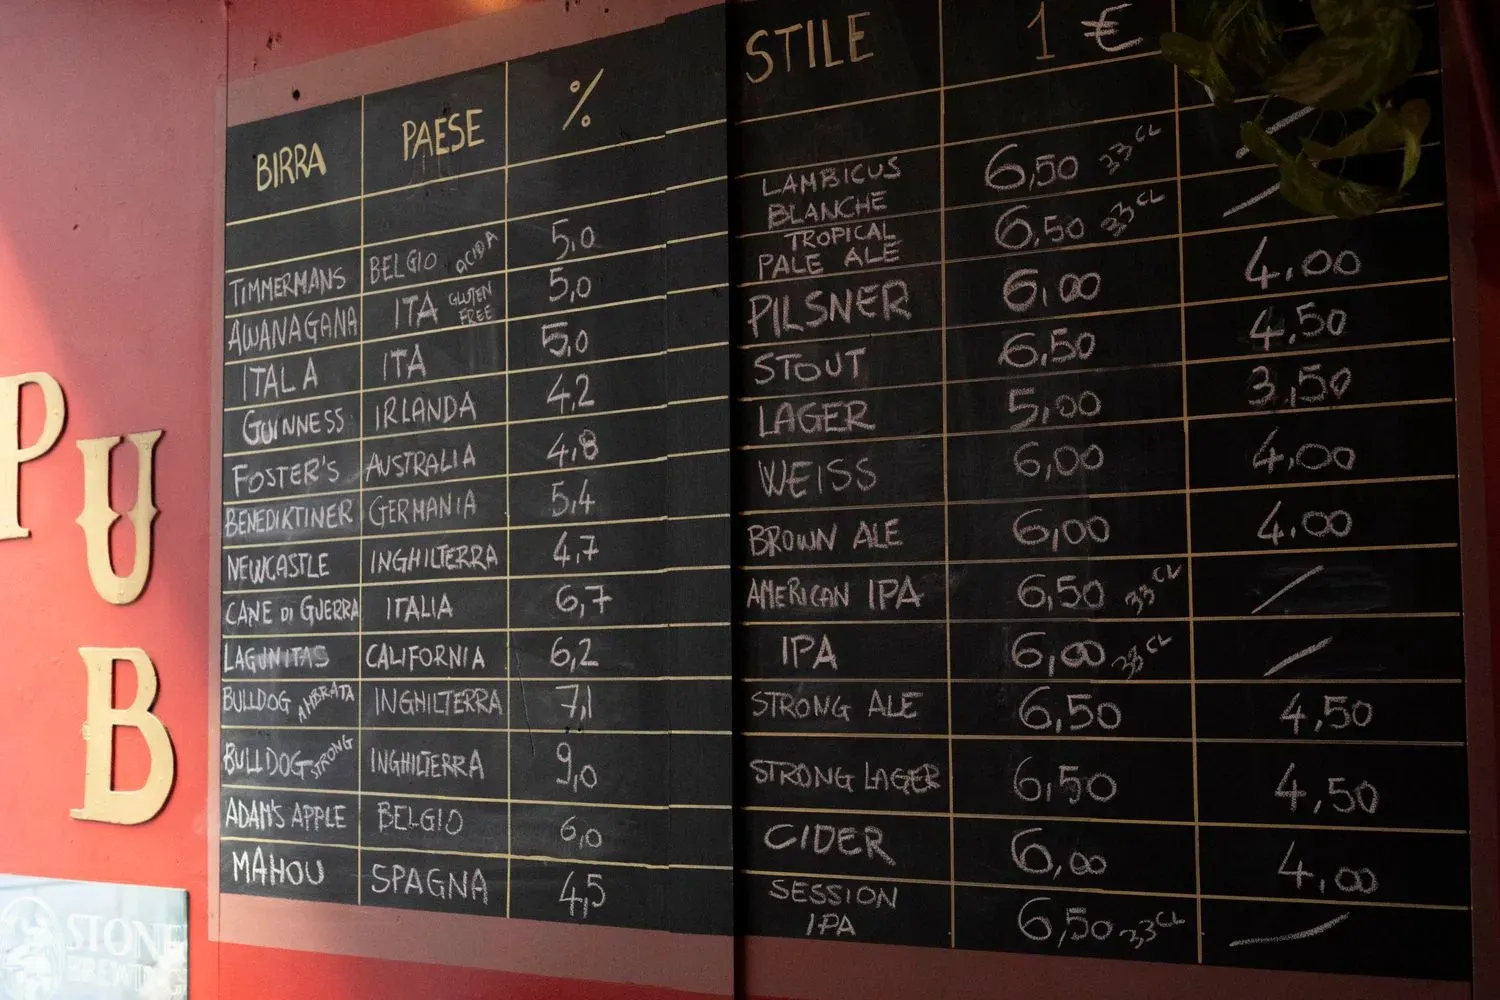 BIRRA PAESE % STILE 1 €
TIMMERMANS BELGIO ACIDA 5,0 LAMBICUS BLANCHE 6,50 33 CL /
AWANAGANA ITA GLUTEN FREE 5,0 TROPICAL PALE ALE 6,50 33 CL /
ITALA ITA 5,0 PILSNER 6,00 4,00
GUINNESS IRLANDA 4,2 STOUT 6,50 4,50
FOSTER'S AUSTRALIA 4,8 LAGER 5,00 3,50
BENEDIKTINER GERMANIA 5,4 WEISS 6,00 4,00
NEWCASTLE INGHILTERRA 4,7 BROWN ALE 6,00 4,00
CANE DI GUERRA ITALIA 6,7 AMERICAN IPA 6,50 33 CL /
LAGUNITAS CALIFORNIA 6,2 IPA 6,00 33 CL /
BULLDOG AMBRATA INGHILTERRA 7,1 STRONG ALE 6,50 4,50
BULLDOG STRONG INGHILTERRA 9,0 STRONG LAGER 6,50 4,50
ADAM'S APPLE BELGIO 6,0 CIDER 6,00 4,00
MAHOU SPAGNA 4,5 SESSION IPA 6,50 33 CL /
PUB
STONE
BREWING